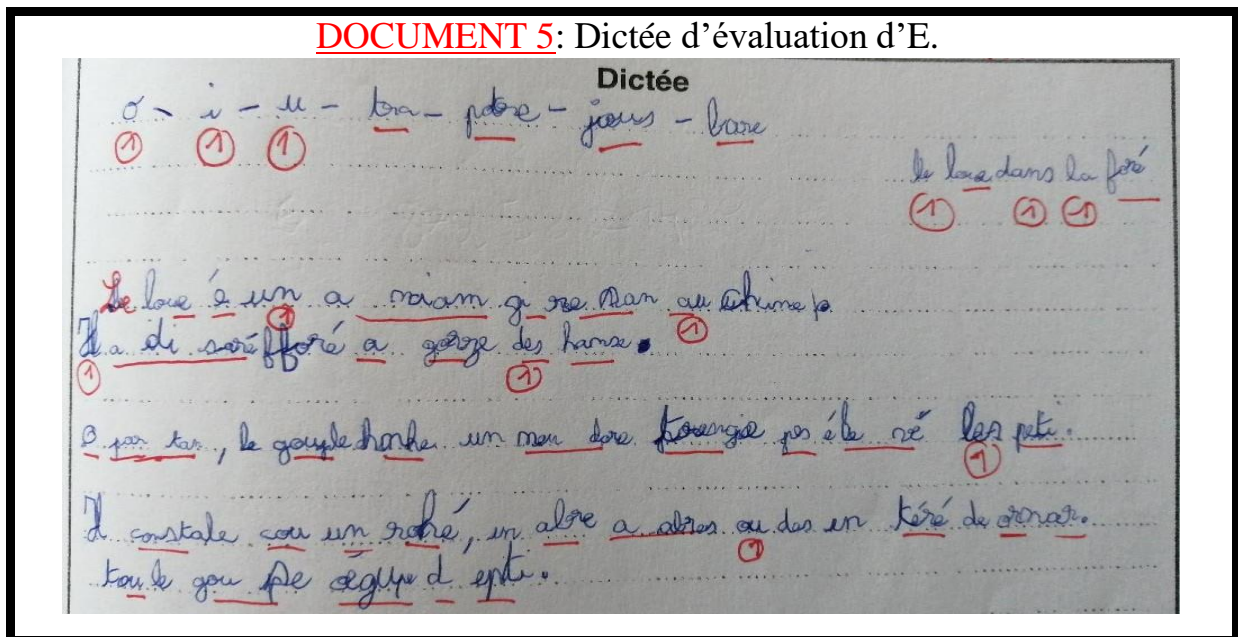 DOCUMENT 5: Dictée d'évaluation d'E.
Dictée
o - i - u - tra - pdre - jours - bare
1 1 1
le loue dans la foré
1 1 1
Le loue é un a miam gi re nan au chime p
1 1
Il a di saré fforé a garze des hanse.
1 1
O par tan, le gouple honhe un men dore pourgie pos éle vé les peti.
1
Il constale cou un rohé, un abre a abres ou des un téré de ornar.
1
tou le gou pe ségupe d epti.